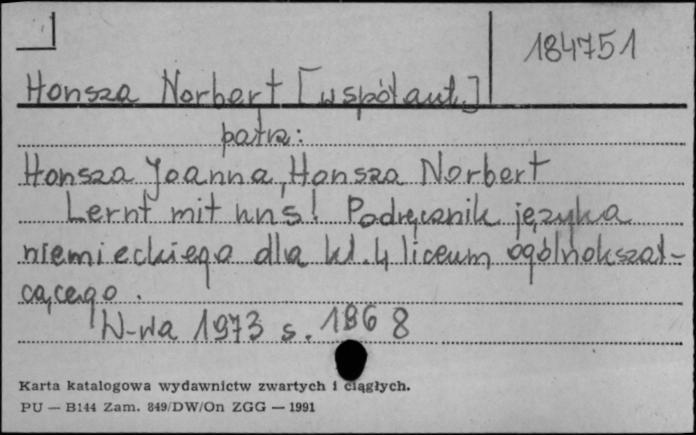 184751
Honsza Norbert [współaut.]
patrz:
Honsza Joanna, Honsza Norbert
Lernt mit uns! Podręcznik języka
niemieckiego dla kl. 4 liceum ogólnokształ-
cącego.
W-wa 1973 s. 186 8
Karta katalogowa wydawnictw zwartych i ciągłych.
PU — B144 Zam. 849/DW/On ZGG — 1991